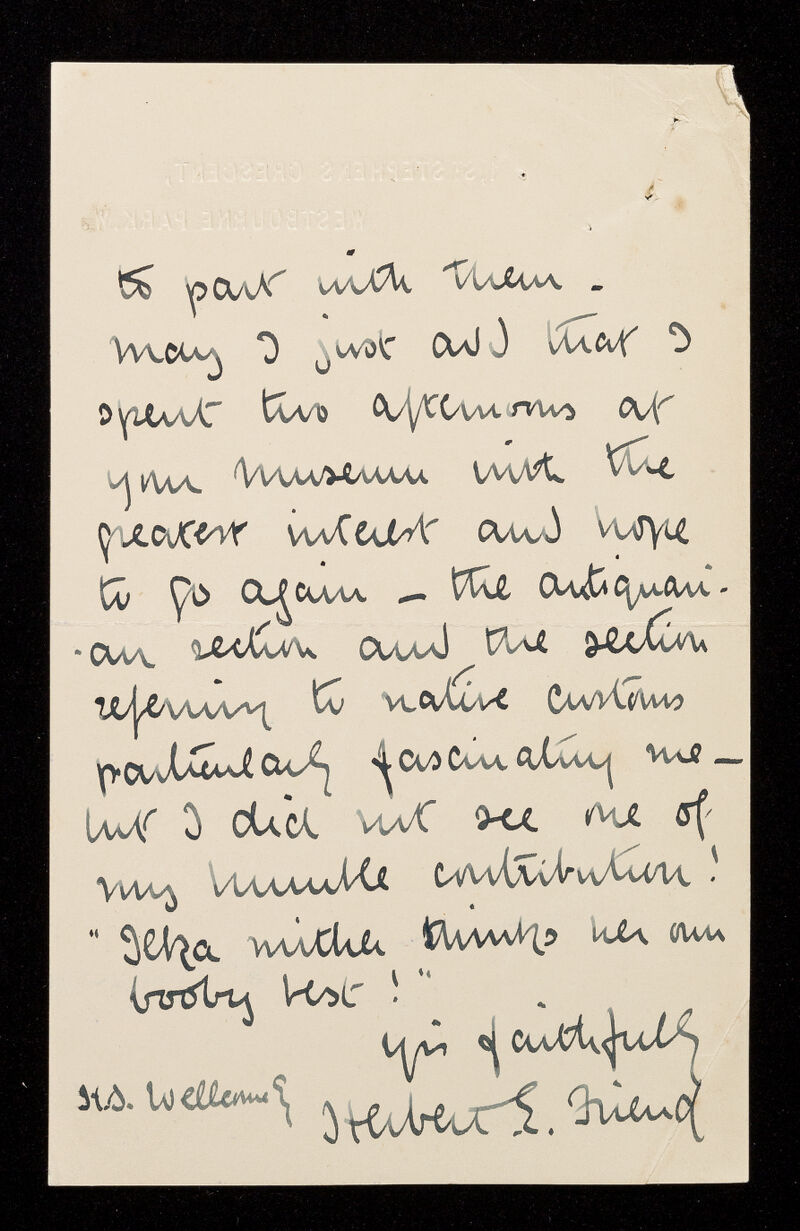 ST STEPHEN'S CRESCENT,
WESTBOURNE PARK. W.
to part with them -
May I just add that I
spent two afternoons at
your Museum with the
greatest interest and hope
to go again - the antiquari-
-an section and the section
referring to native customs
particularly fascinating me -
but I did not see one of
my humble contribution!
"Ilka mither thinks her own
booby best!"
Yrs faithfully
Herbert E. Friend
H.S. Wellcome Esq